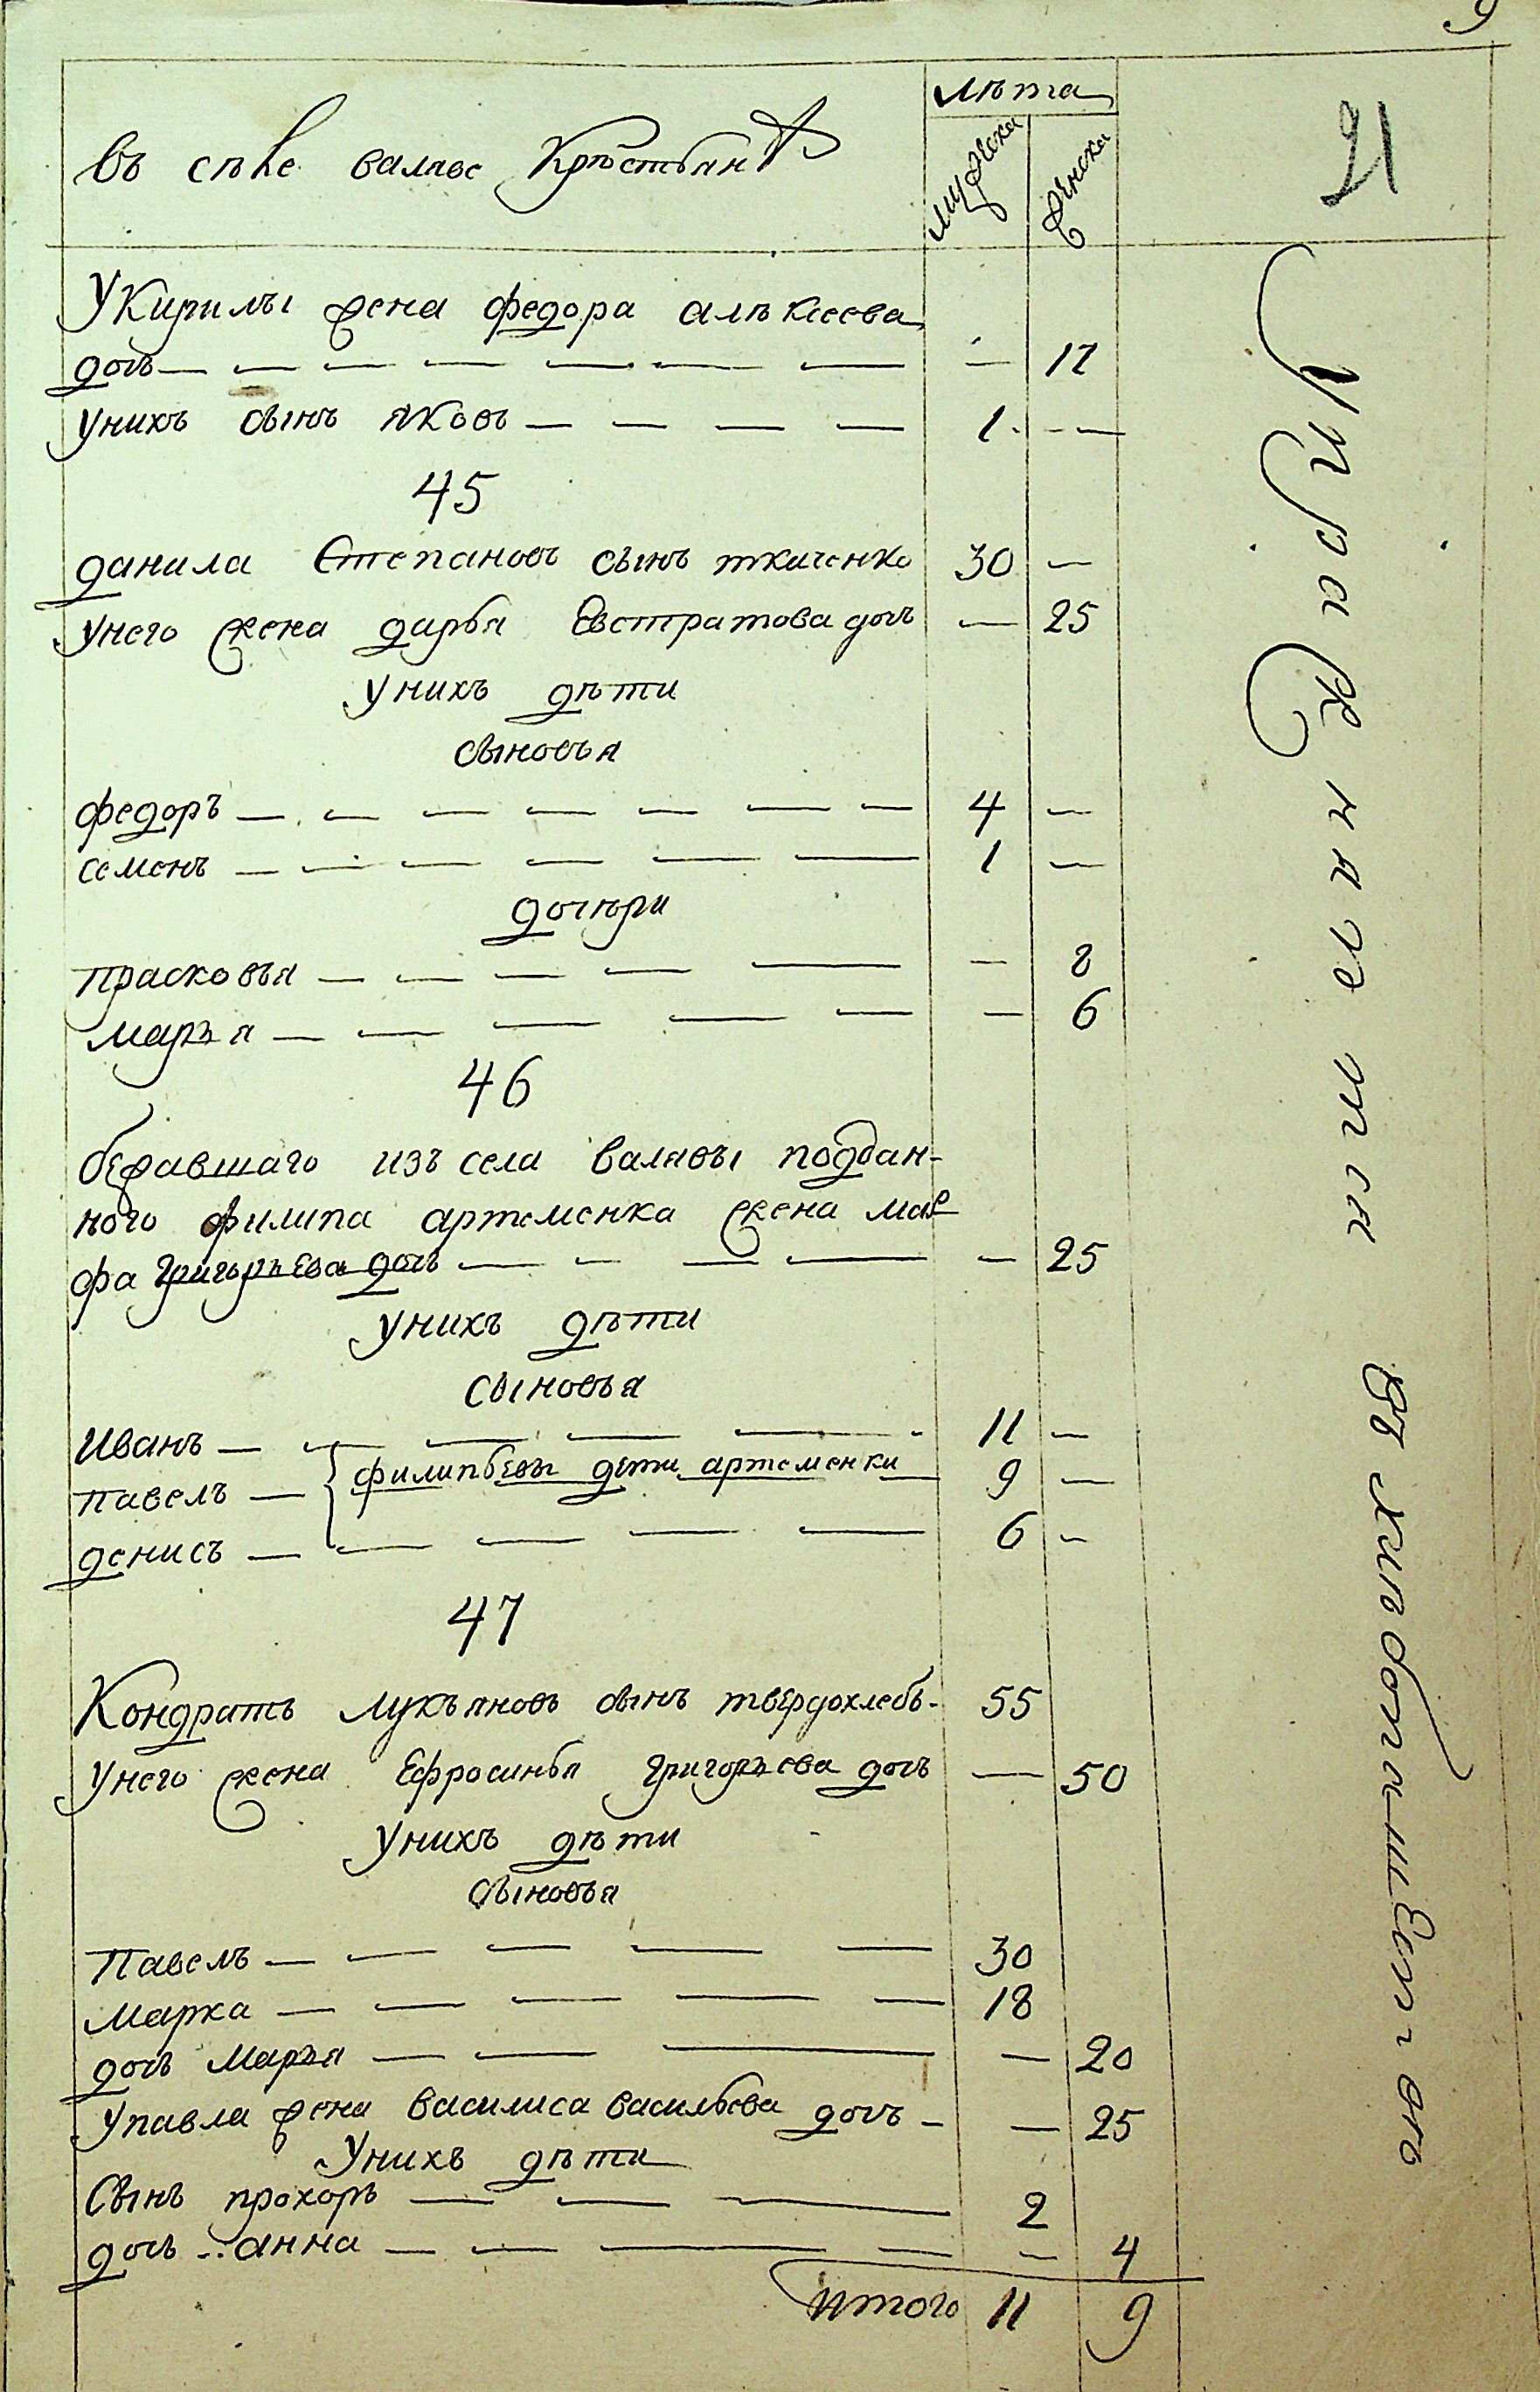 9
лѣта
21
въ селе валаве крѣстьянъ
мужеска
женска
У Кирилы жена федора алѣксеева
дочь — — — — — — — — 17
у нихъ сынъ яковъ — — — — 1 —
45
данила Степановъ сынъ ткаченко 30 —
у него жена дарья Евстратова дочь — 25
у нихъ дѣти
сыновья
федоръ — — — — — — — 4 —
семенъ — — — — — — 1 —
дочѣри
прасковья — — — — — — 8
марья — — — — — — 6
46
бежавшаго изъ села валавы поддан-
ного филипа артеменка жена мар
фа григорьева дочь — — — — — 25
у нихъ дѣти
сыновья
иванъ — — — — — 11 —
павелъ — филипьевы дети артеменки 9 —
денисъ — — — — — 6 —
47
Кондратъ лукьяновъ сынъ твердохлебъ - 55
у него жена Ефросинья григорьева дочь — 50
у нихъ дѣти
сыновья
павелъ — — — — — 30
марка — — — — — 18
дочь марья — — — — 20
у павла жена василиса васильева дочь - — 25
У нихъ дѣти
Сынъ прохоръ — — — 2
дочь анна — — — — — 4
итого 11 9